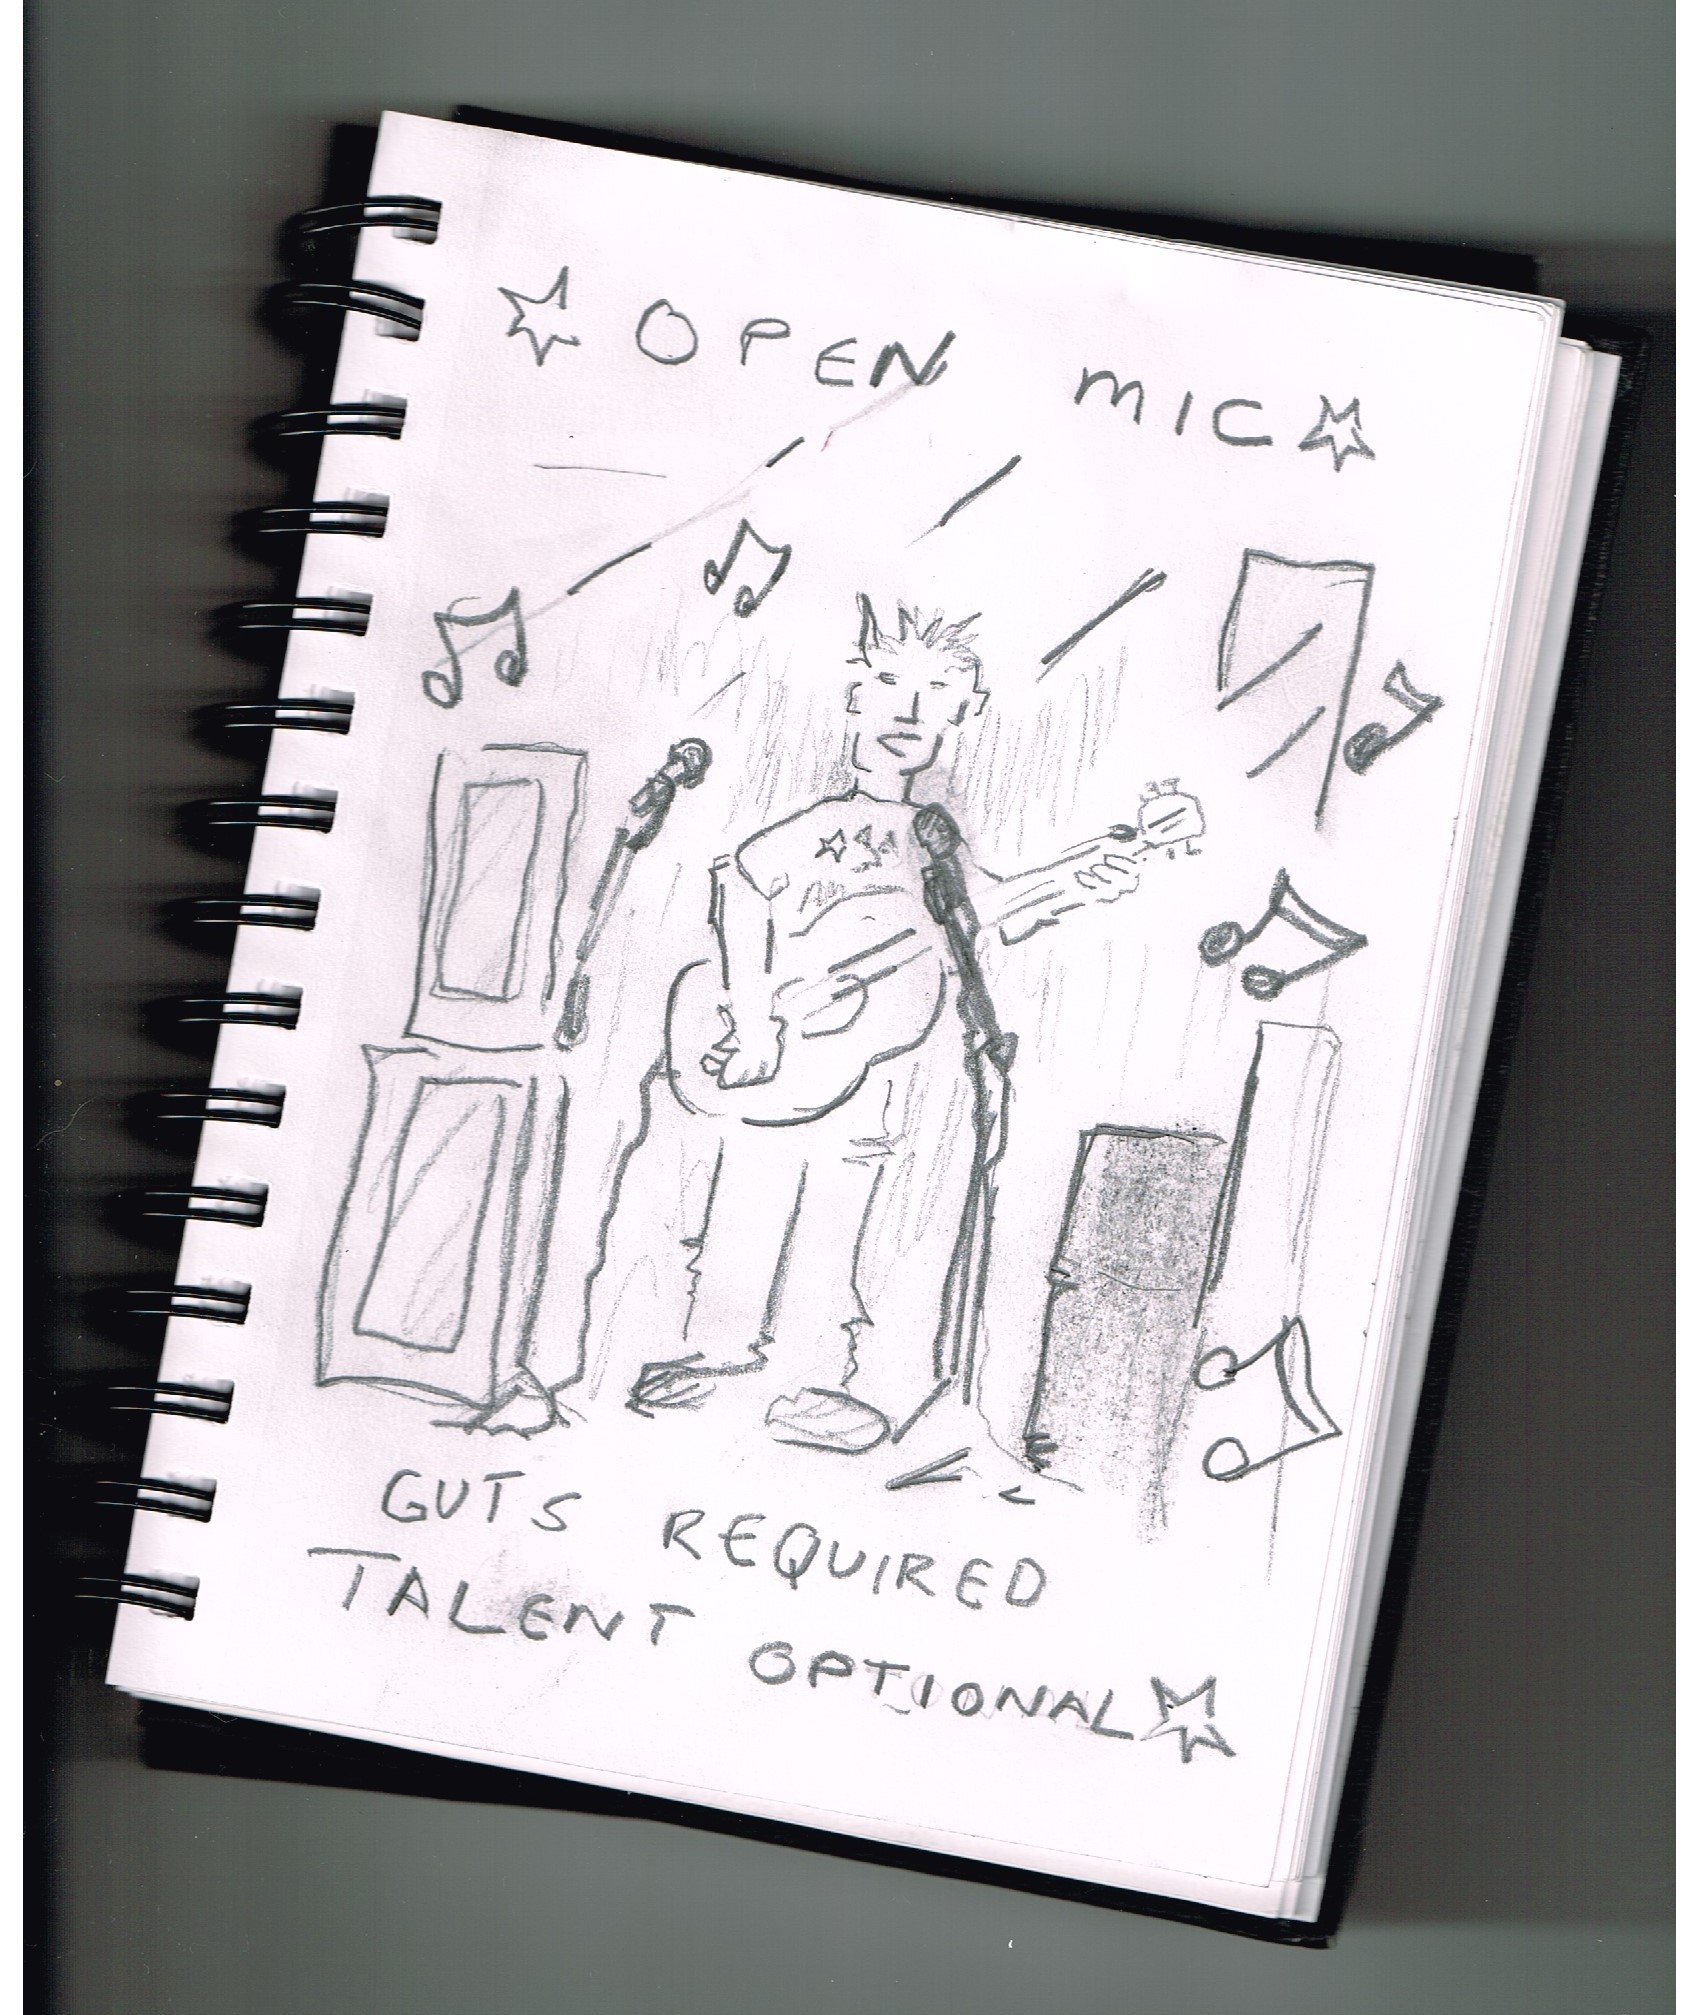 OPEN MIC
GUTS REQUIRED
TALENT OPTIONAL